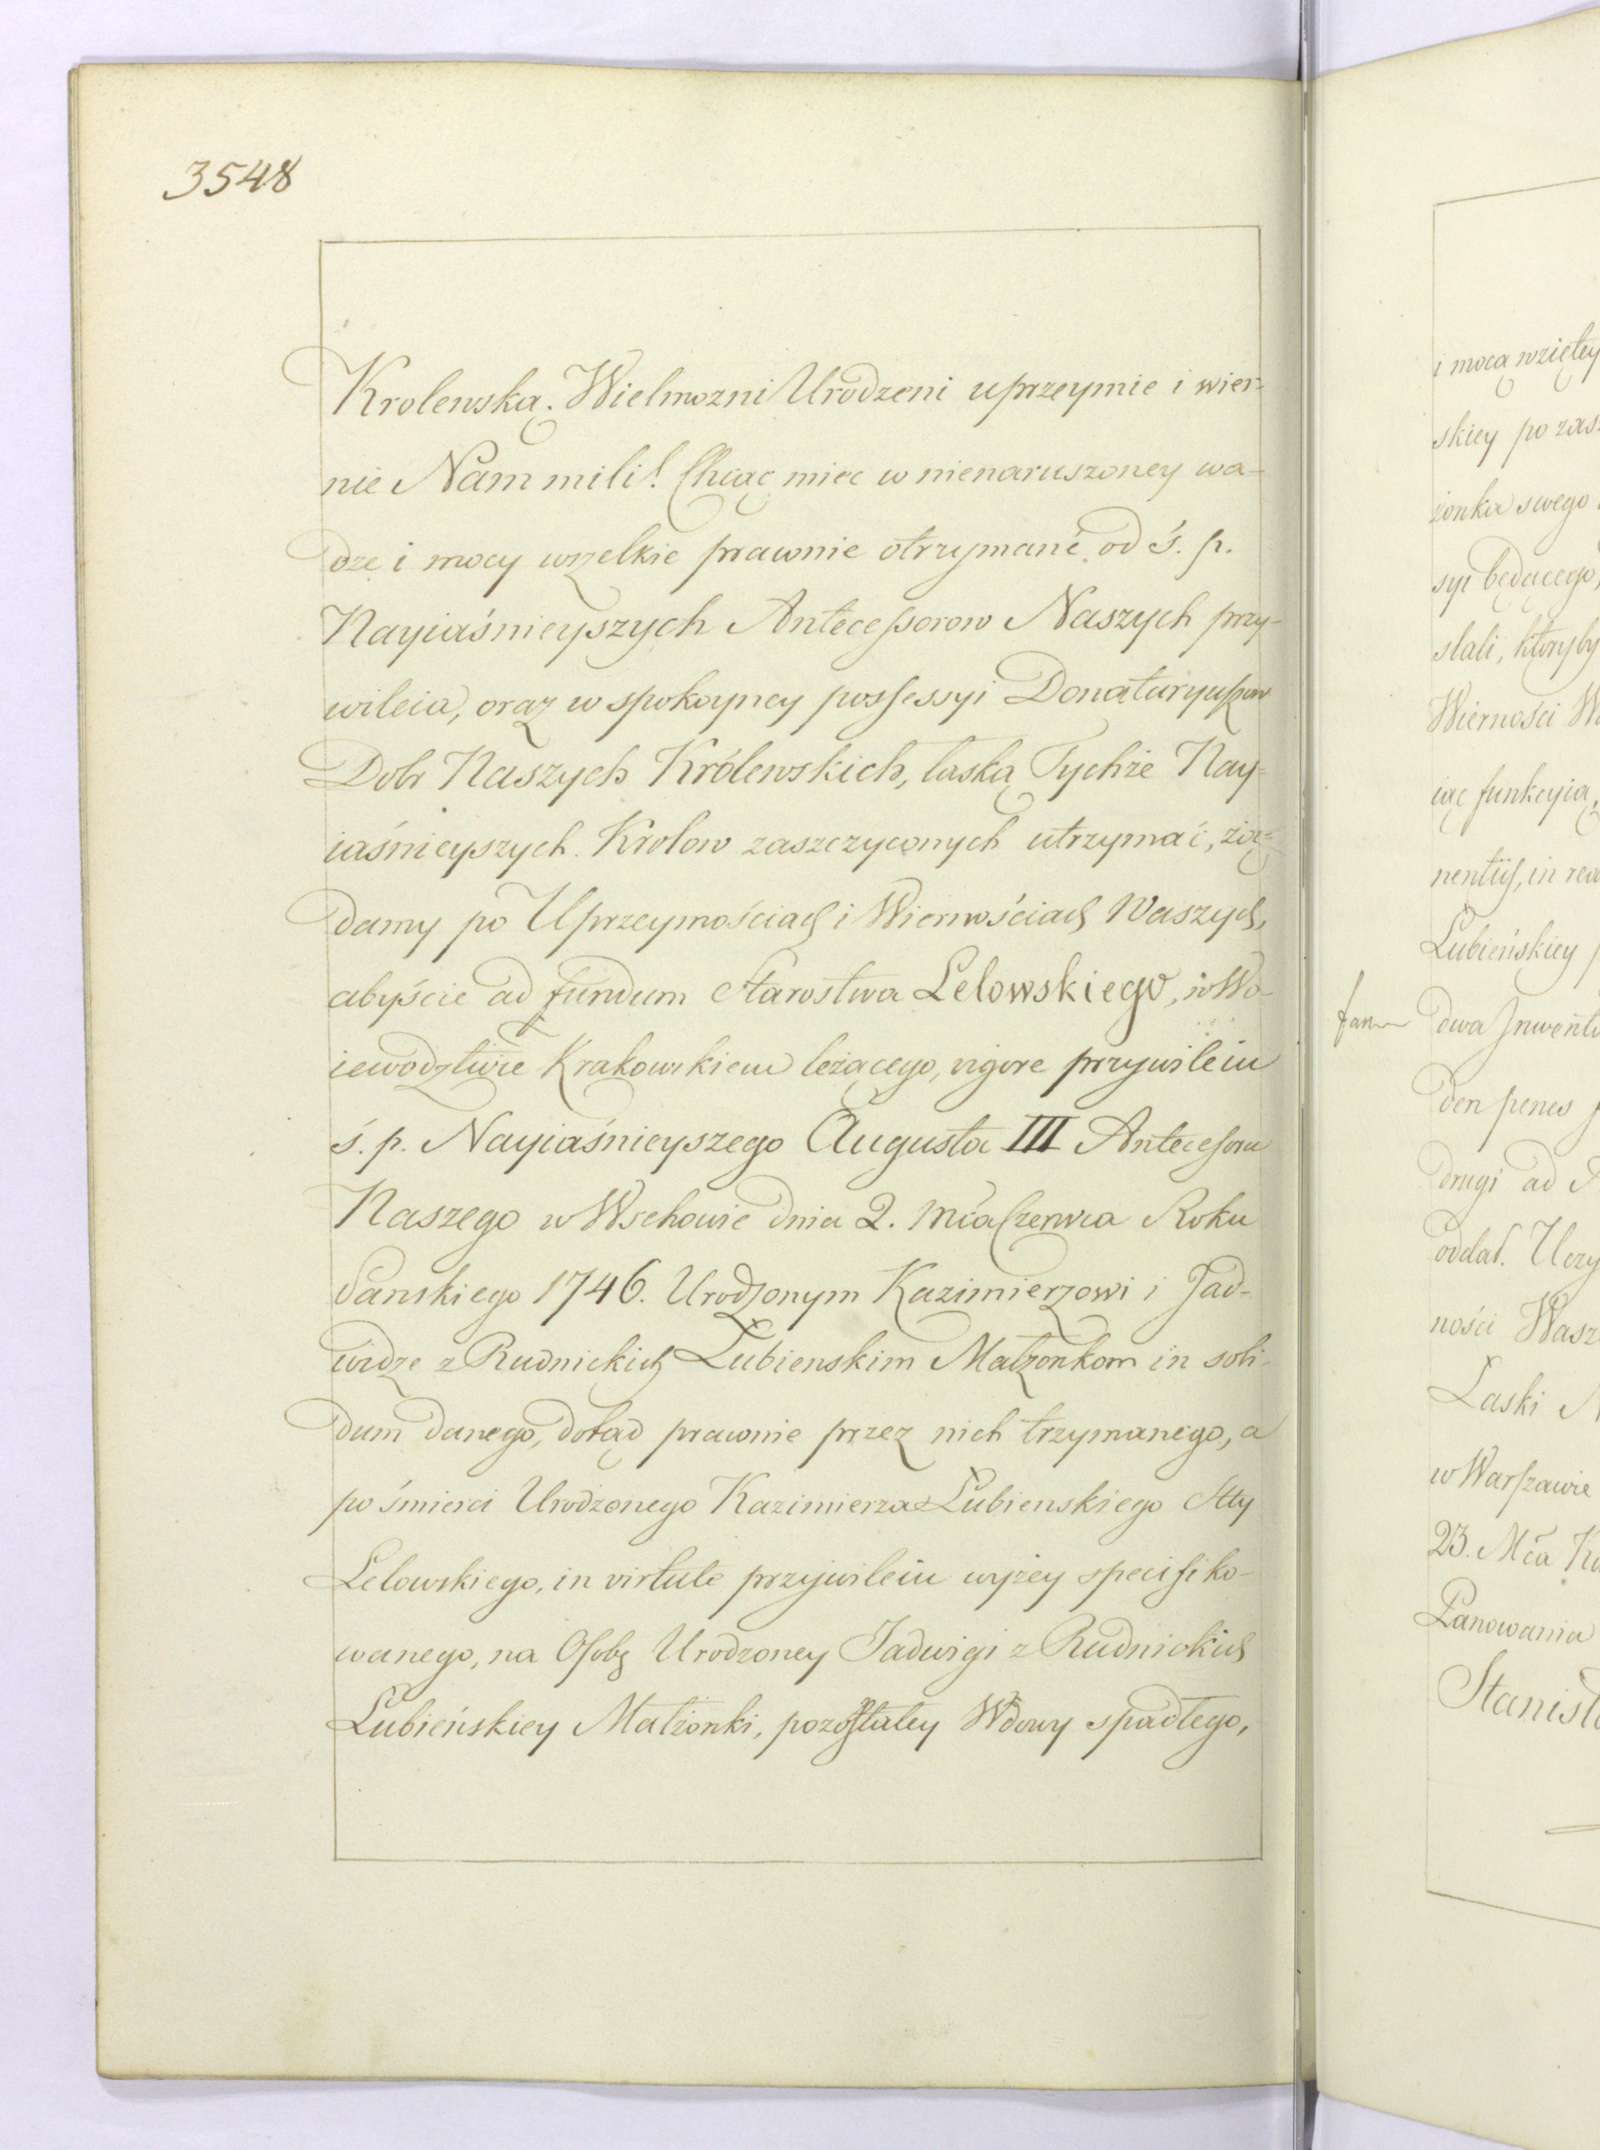 3548
Krolewską. Wielmozni Urodzeni uprzeymie i wier-
nie Nam mili! Chcąc miec w nienaruszoney wa-
dze i mocy wszelkie prawnie otrzymané od ś. p.
Nayiaśnieyszych Antecessorow Naszych przy-
wileia, oraz w spokoyney possessyi Donataryuszow
Dobr Naszych Królewskich, łaską Tychże Nay-
iaśnieyszych Krolow zaszczyconych utrzymać, żą-
damy po Uprzeymościach i Wiernościach Waszych,
abyście ad fundum Starostwa Lelowskiego, w Wo-
iewodztwie Krakowskiem leżącego, vigore przywileiu
ś. p. Nayiaśnieyszego Augusta III Antecessora
Naszego w Wschowie dnia 2. Mca Czerwca Roku
Panskiego 1746. Urodzonym Kazimierzowi i Jad-
widze z Rudnickich Lubienskim Małzonkom in soli-
dum danego, dotąd prawnie przez nich trzymanego, a
po śmierci Urodzonego Kazimierza Lubienskiego Stty
Lelowskiego, in virtute przywileiu wyżey specifiko-
wanego, na Osobę Urodzoney Jadwigi z Rudnickich
Lubieńskiey Małżonki, pozostałey Wdowy spadłego,
i mocą wziętey
skiey po
żonka swego
syi będącego,
stali, ktorzyby
Wierności
iąc funkcyią,
nentiis, in
Lubieńskiey
dwa
den penes
drugi ad
oddał.
ności
Łaski
w Warszawie
23. Mca
Panowania